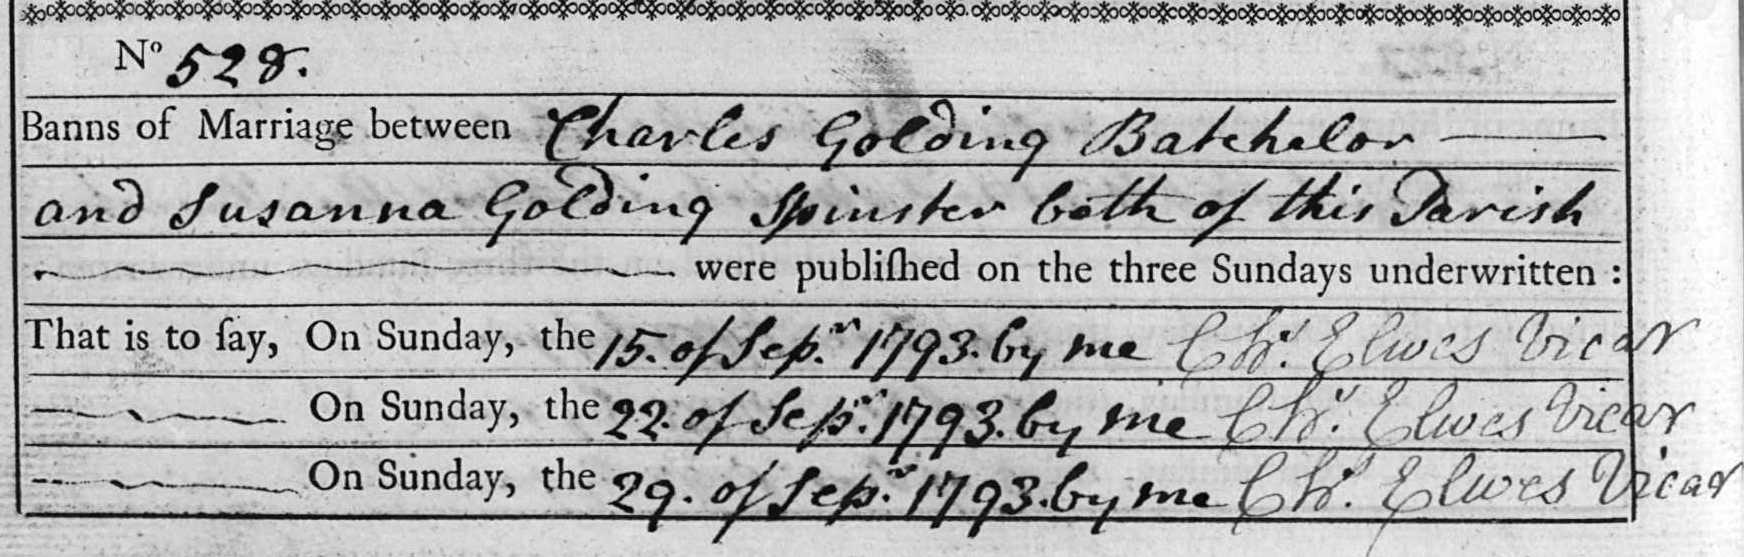 No 528.
Banns of Marriage between Charles Golding Batchelor
and Susanna Golding Spinster both of this Parish
were publiſhed on the three Sundays underwritten :
That is to ſay, On Sunday, the 15. of Sepr. 1793. by me Chr. Elwes Vicar
On Sunday, the 22. of Sepr. 1793. by me Chr. Elwes Vicar
On Sunday, the 29. of Sepr. 1793. by me Chr. Elwes Vicar